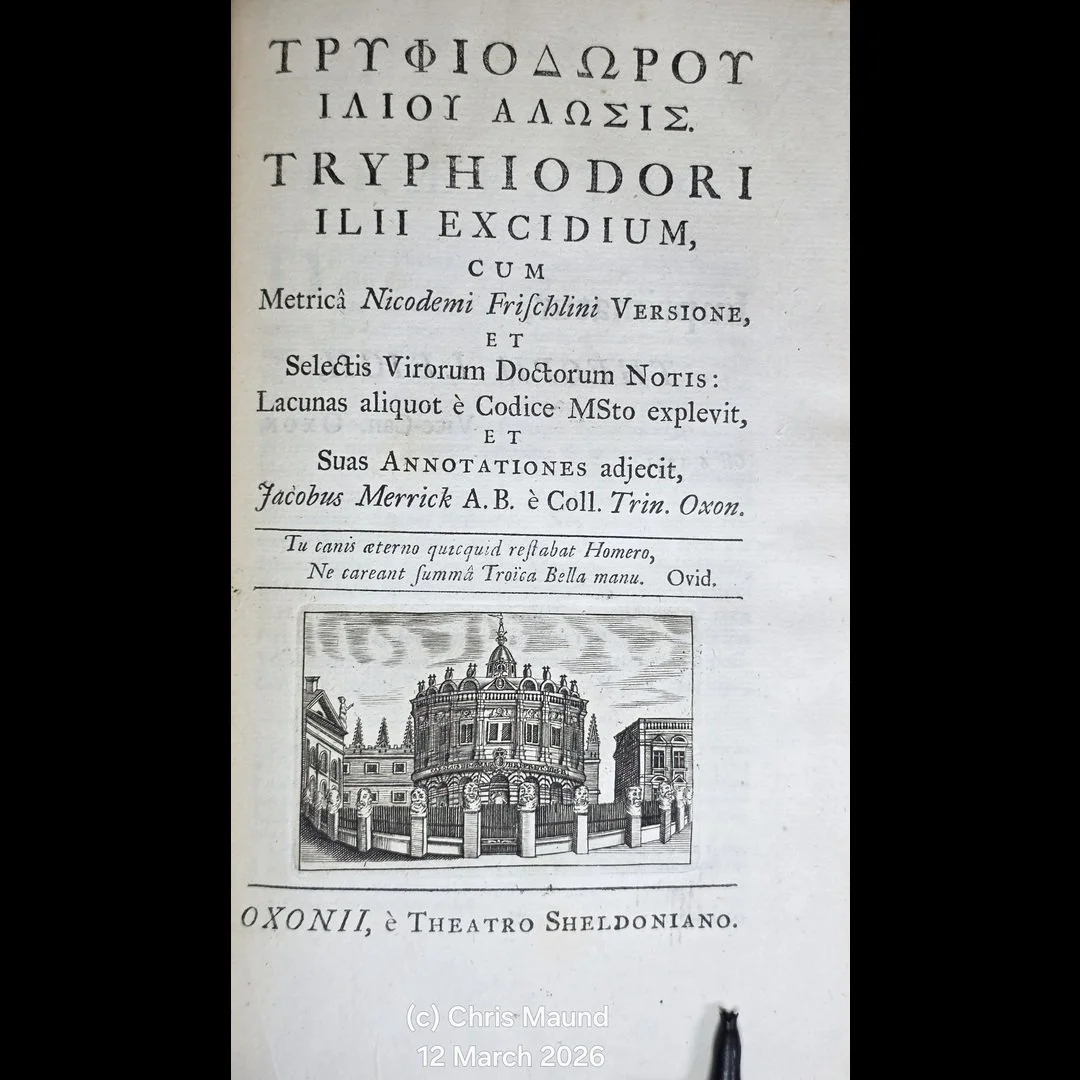 ΤΡΥΦΙΟΔΩΡΟΥ
ΙΛΙΟΥ ΑΛΩΣΙΣ.
TRYPHIODORI
ILII EXCIDIUM,
CUM
Metricâ Nicodemi Friſchlini VERSIONE,
ET
Selectis Virorum Doctorum NOTIS:
Lacunas aliquot è Codice MSto explevit,
ET
Suas ANNOTATIONES adjecit,
Jacobus Merrick A.B. è Coll. Trin. Oxon.
Tu canis æterno quicquid reſtabat Homero,
Ne careant ſummâ Troïca Bella manu. Ovid.
OXONII, è THEATRO SHELDONIANO.
(c) Chris Maund
12 March 2026